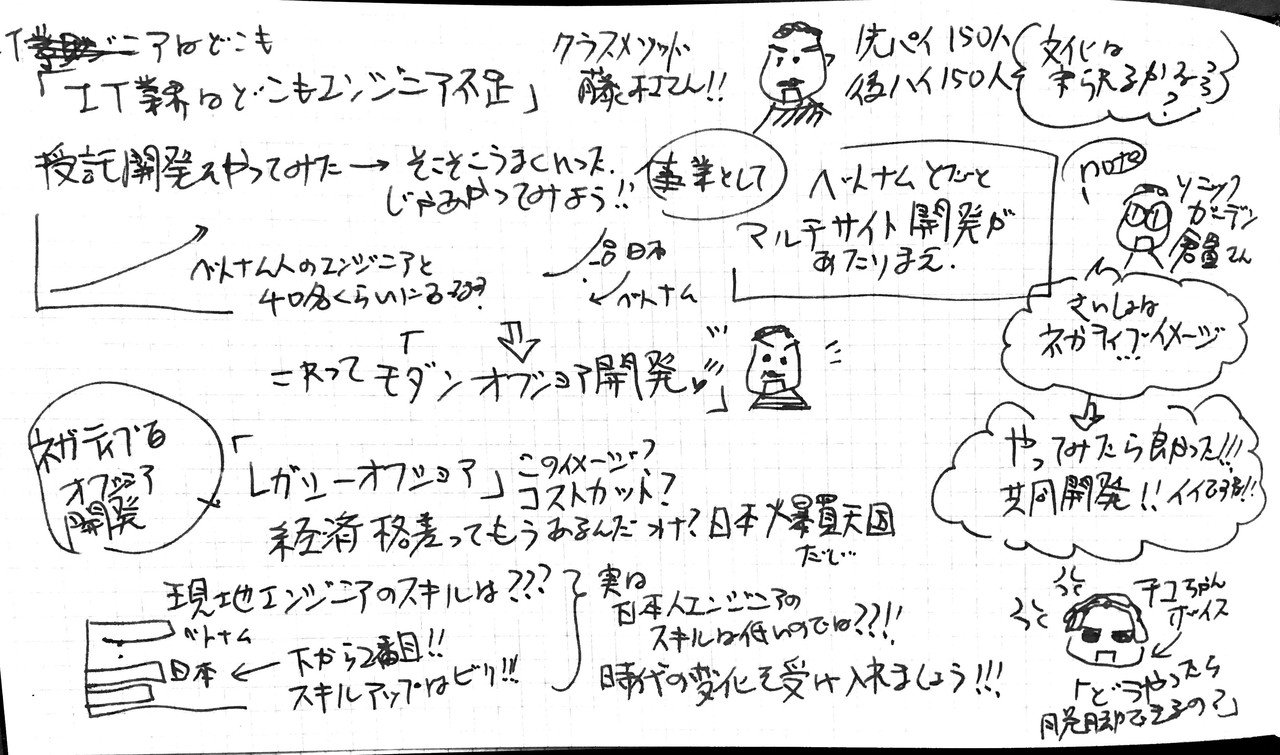 「IT業界はどこもエンジニア不足」
クラスメソッド
藤村さん!!
先パイ150人
後ハイ150人
文化は
守られるかな???
受託開発をやってみた→そこそこうまくいった。
じゃあやってみよう!!
事業として
ベトナムだと
マルチサイト開発が
あたりまえ.
note
ソニック
ガーデン
倉貫さん
ベトナム人のエンジニアと
40名くらいになる??
日本
ベトナム
さいしょは
ネガティブイメージ
これって「モダンオフショア開発」
ネガティブな
オフショア
開発
「レガシーオフショア」
このイメージ?
コストカット?
経済格差ってもうあるんだっけ?日本爆買天国
だし…
やってみたら良かった!!!
共同開発!!イイですね!!
現地エンジニアのスキルは???
ベトナム
日本←下から2番目!!
スキルアップはビリ!!!
実は
日本人エンジニアの
スキルは低いのでは??!!
時代の変化を受け入れましょう!!!
チコちゃん
ボイス
「どうやったら
脱却できるの?」